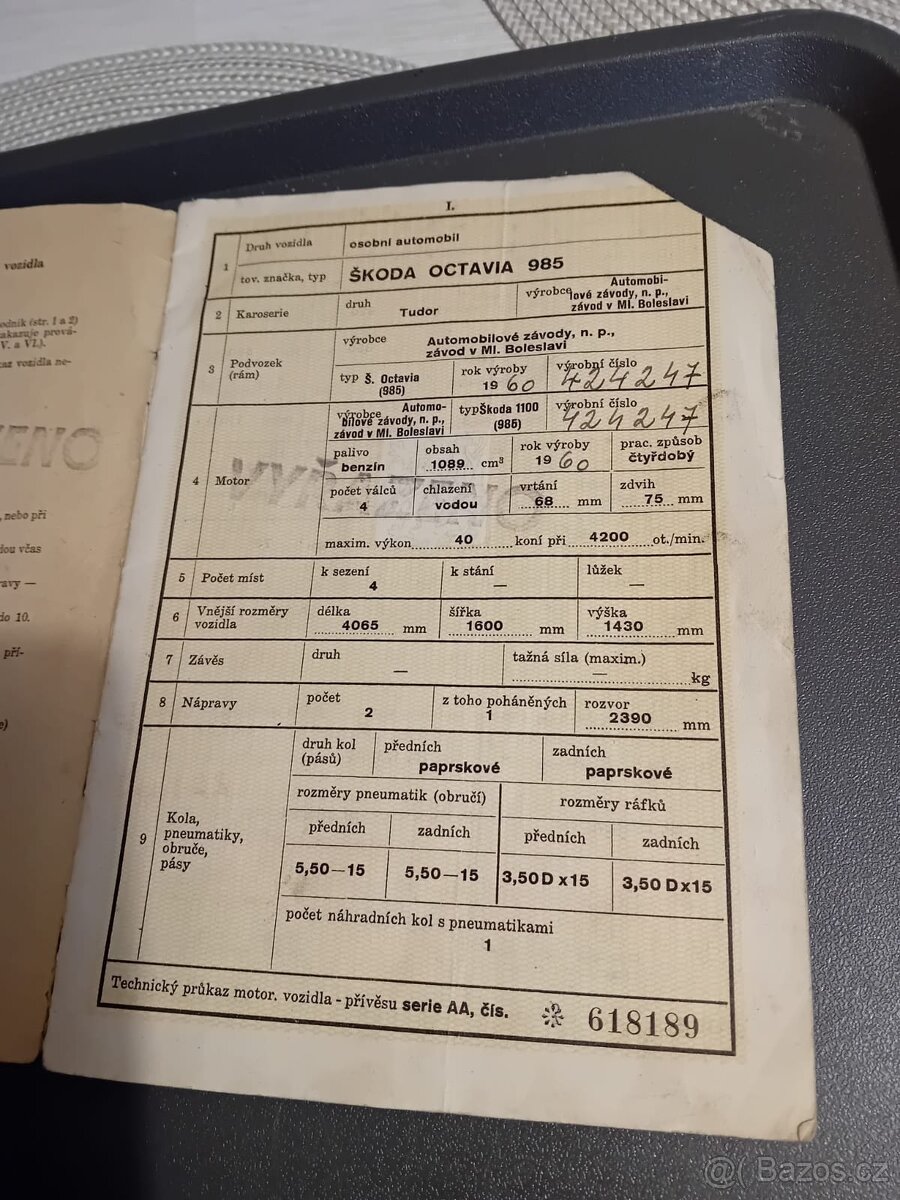 vozidla
odník (str. 1 a 2)
akazuje prová-
V. a VI.).
az vozidla ne-
ENO
, nebo při
dou včas
ravy —
do 10.
pří-
e)
I.
1 Druh vozidla osobní automobil
tov. značka, typ ŠKODA OCTAVIA 985
2 Karoserie druh Tudor výrobce Automobi-
lové závody, n. p.,
závod v Ml. Boleslavi
3 Podvozek
(rám)
výrobce Automobilové závody, n. p.,
závod v Ml. Boleslavi
typ Š. Octavia
(985)
rok výroby
1960
výrobní číslo
424247
4 Motor
výrobce Automo-
bilové závody, n. p.,
závod v Ml. Boleslavi
typ Škoda 1100
(985)
výrobní číslo
424247
palivo
benzín
obsah
1089 cm³
rok výroby
1960
prac. způsob
čtyřdobý
VYŘAZENO
počet válců
4
chlazení
vodou
vrtání
68 mm
zdvih
75 mm
maxim. výkon 40 koní při 4200 ot./min.
5 Počet míst
k sezení
4
k stání
—
lůžek
—
6 Vnější rozměry
vozidla
délka
4065 mm
šířka
1600 mm
výška
1430 mm
7 Závěs
druh
—
tažná síla (maxim.)
— kg
8 Nápravy
počet
2
z toho poháněných
1
rozvor
2390 mm
9 Kola,
pneumatiky,
obruče,
pásy
druh kol
(pásů)
předních
paprskové
zadních
paprskové
rozměry pneumatik (obručí) rozměry ráfků
předních zadních předních zadních
5,50—15 5,50—15 3,50 D x 15 3,50 D x 15
počet náhradních kol s pneumatikami
1
Technický průkaz motor. vozidla - přívěsu serie AA, čís. 618189
@( Bazos.cz